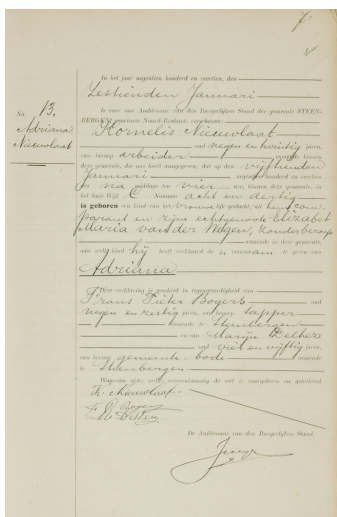 In het jaar negentien honderd en veertien, den
Zestienden Januari
is voor ons Ambtenaar van den Burgerlijken Stand der gemeente STEEN-
BERGEN, provincie Noord-Brabant, verschenen:
No. 13.
Adriana
Nieuwlaat
Kornelis Nieuwlaat
oud negen en twintig jaren,
van beroep arbeider wonende binnen
deze gemeente, die ons heeft aangegeven, dat op den vijftienden
Januari negentienhonderd en veertien
des na middags ten vier ure, binnen deze gemeente, in
het huis Wijk C Nummer acht en dertig
is geboren een kind van het vrouwelijk geslacht, uit hem com-
parant en zijne echtgenoote Elizabet
Maria van der Wegen, zonder beroep
wonende in deze gemeente,
aan welk kind hij heeft verklaard de voornaam te geven van
Adriana
Deze verklaring is geschied in tegenwoordigheid van
Frans Pieter Bogers oud
negen en zestig jaren, van beroep tapper
wonende te Steenbergen
en van
oud vier en vijftig jaren,
van beroep gemeente-bode wonende
te Steenbergen
Waarvan akte, welke overeenkomstig de wet is voorgelezen en geteekend
K. Nieuwlaat.
F. P. Bogers
De Ambtenaar van den Burgerlijken Stand,